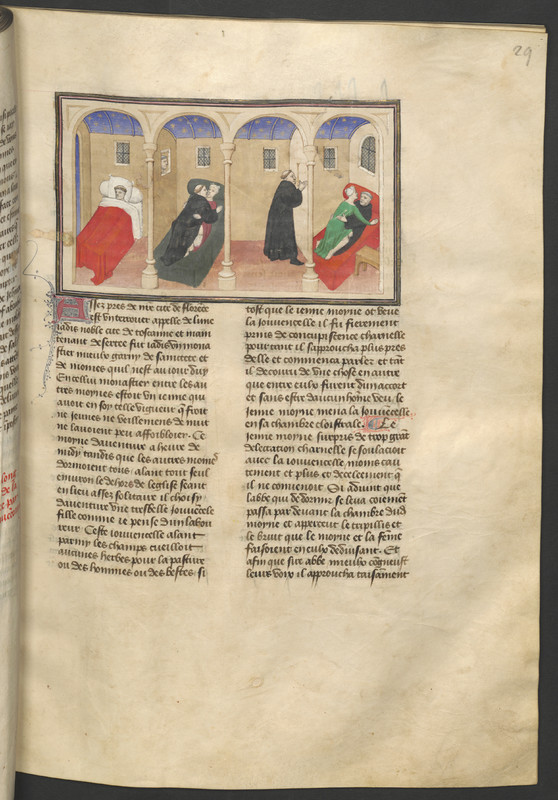 29
Assez pres de nre cite de florēce
est vn terrouer appelle de lune
iadis noble cite de toscane et main
tenant deserte fut iadis vn mona
stier mieulx garny de sainctete et
de moines quil nest au iour duy
En cellui monastier entre les au
tres moynes estoit vn ieune qui
auoit en soy telle vigueur q̄ froit
ne ieunes ne veillemens de nuit
ne lauoient peu affoibloier. Ce
moyne dauenture a heure de
midy tandis que les autres moines
dormoient tous alant tout seul
enuiron le dehors de leglise seant
en lieu assez solitaire il choisy
dauenture vne tresbelle iouuēcele
fille comme ie pense dun labou
reur Ceste iouuencelle alant
parmy les champs cueilloit
aucunes herbes pour la pasture
ou des hommes ou des bestes si
tost que le ienne moyne ot veue
la iouuencelle il fu fierement
prins de concupiscence charnelle
pourtant il sapproucha plus pres
delle et commenca parler et tāt
il decouru de vne chose en autre
que entre eulx furent dun accort
et sans estre daucun hōme veu le
ienne moyne mena la iouuēcelle
en sa chambre cloistrale. Le
ienne moyne surpris de trop grāt
delectation charnelle se soulacioit
auec la iouuencelle moins cau
tement et plus descelement q̄
il ne conuenoit Si aduint que
labbe qui de dormir se leua coiemēt
passa par deuant la chambre dud
moyne et apperceut le tripillis et
le bruit que le moyne et la fēme
faisoient en eulx deduisant. Et
afin que sire abbe mieulx cōgneust
leurs voix il approucha taisāment